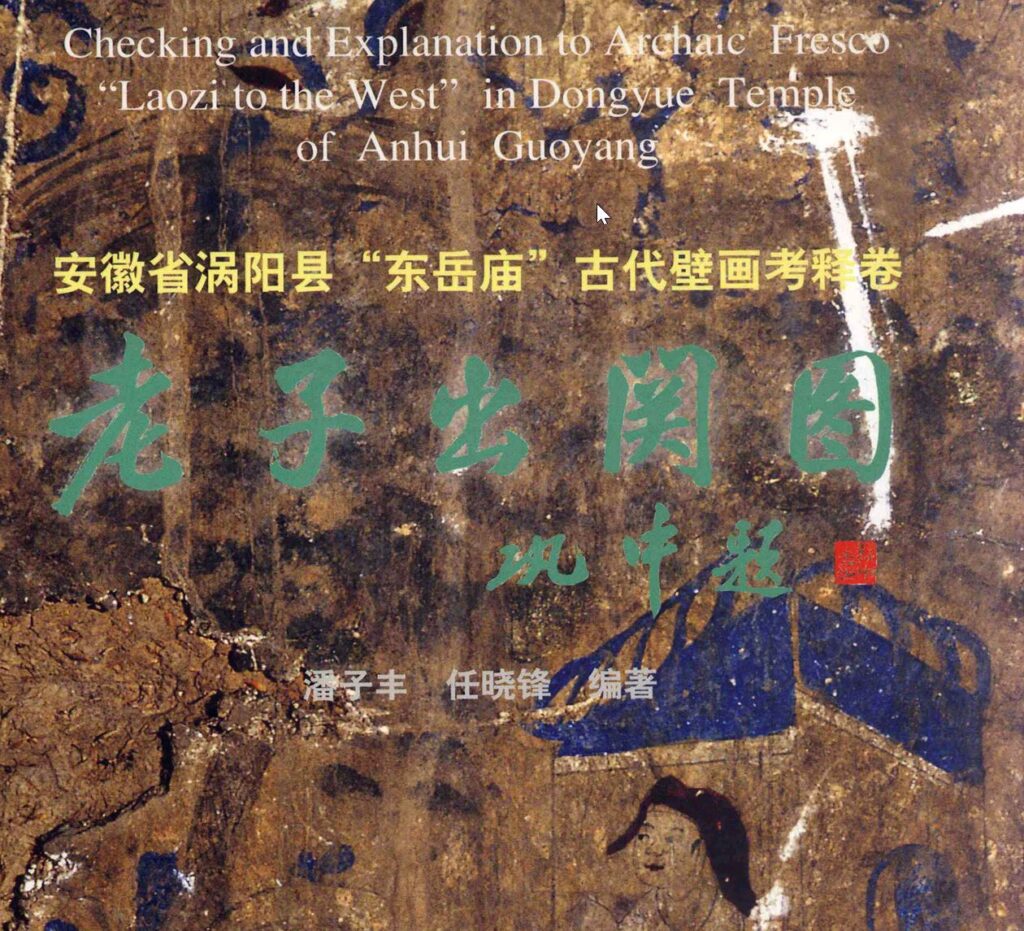 Checking and Explanation to Archaic Fresco
“Laozi to the West” in Dongyue Temple
of Anhui Guoyang
安徽省涡阳县“东岳庙”古代壁画考释卷
老子出関图
巩中题
潘子丰 任晓锋 编著